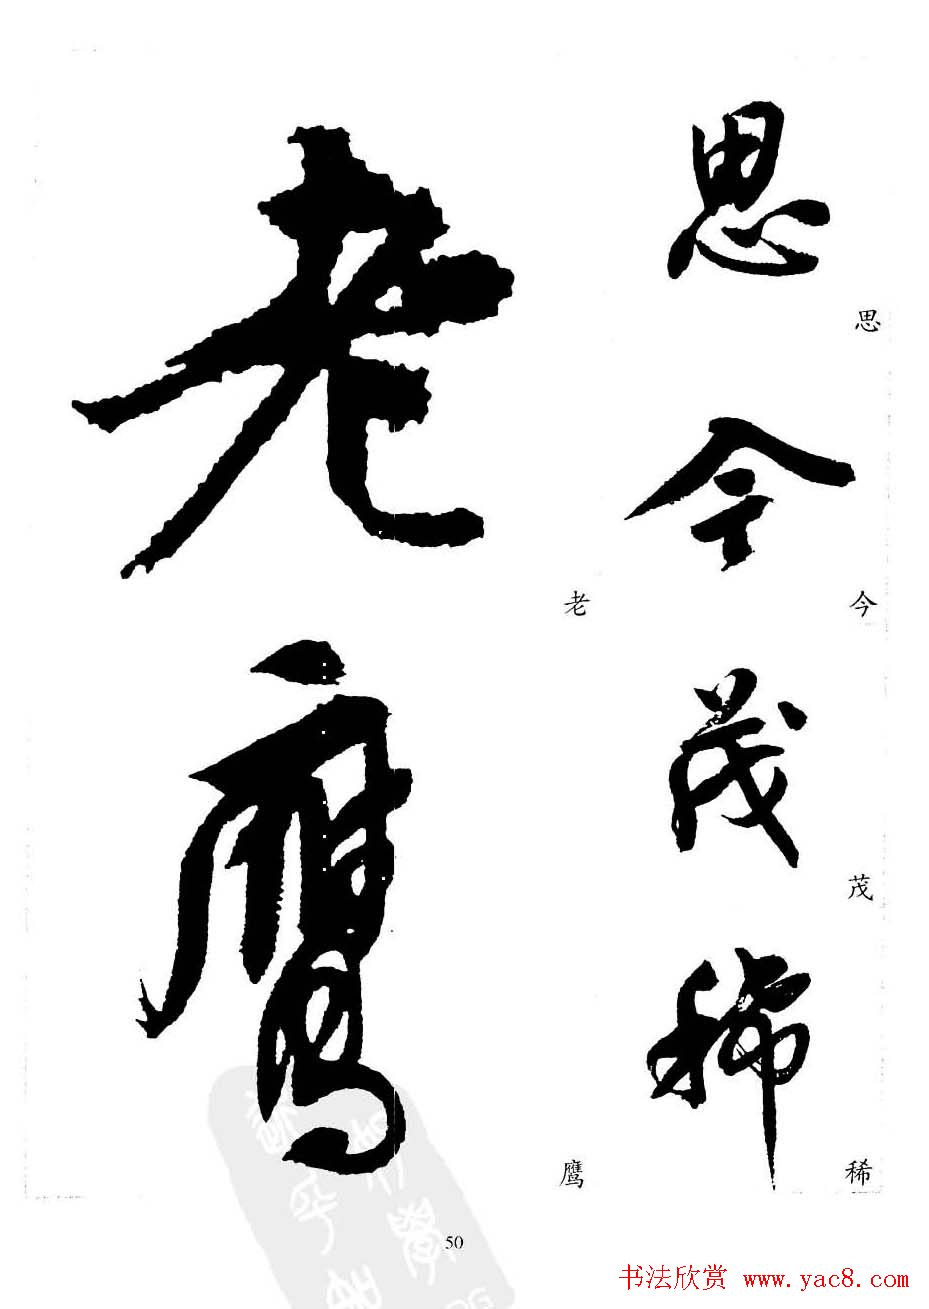 思
思
今
今
茂
茂
稀
稀
老
老
鹰
鹰
50
书法欣赏 www.yac8.com